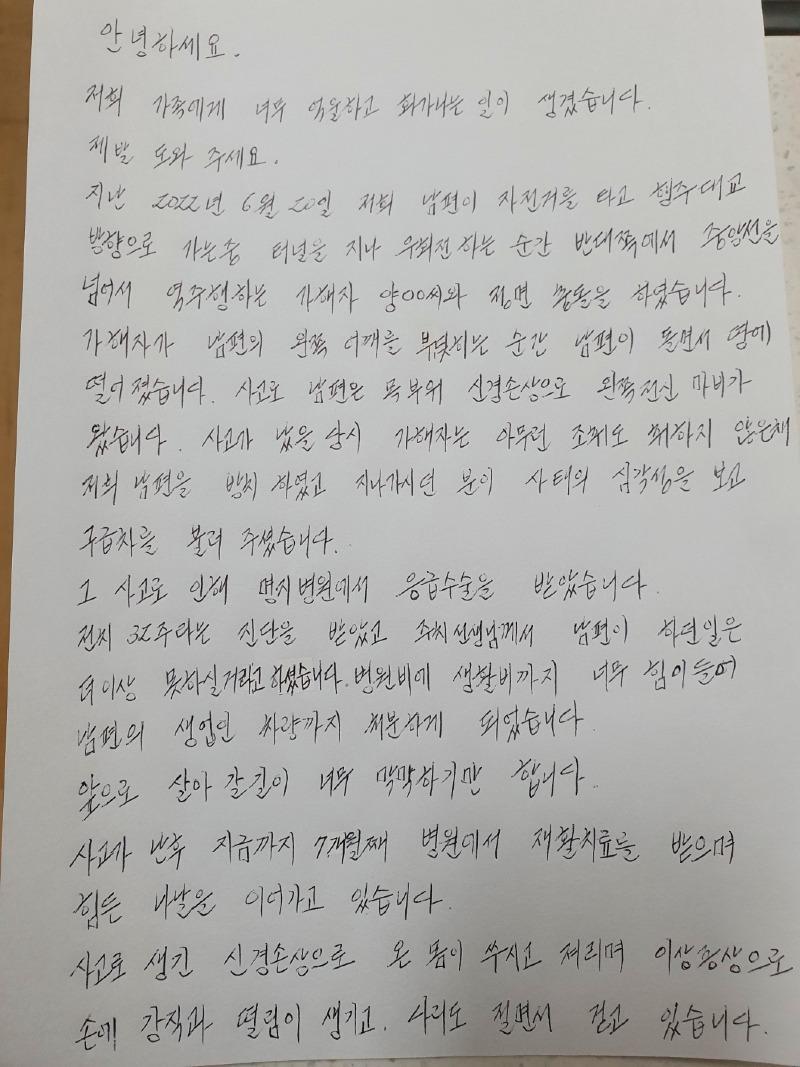 안녕하세요.
저희 가족에게 너무 억울하고 화가나는 일이 생겼습니다.
제발 도와 주세요.
지난 2022년 6월 20일 저희 남편이 자전거를 타고 행주대교
방향으로 가는중 터널을 지나 우회전하는 순간 반대쪽에서 중앙선을
넘어서 역주행하는 가해자 양00씨와 정면 충돌을 하였습니다.
가해자가 남편의 왼쪽 어깨를 부딪히는 순간 남편이 돌면서 땅에
떨어졌습니다. 사고로 남편은 목부위 신경손상으로 왼쪽전신 마비가
왔습니다. 사고가 났을 당시 가해자는 아무런 조치도 취하지 않은채
저희 남편을 방치 하였고 지나가시던 분이 사태의 심각성을 보고
구급차를 불러 주셨습니다.
그 사고로 인해 명지병원에서 응급수술을 받았습니다.
전치 32주라는 진단을 받았고 주치선생님께서 남편이 하던일은
더이상 못하실거라고 하셨습니다. 병원비에 생활비까지 너무 힘이들어
남편의 생업인 차량까지 처분하게 되었습니다.
앞으로 살아 갈길이 너무 막막하기만 합니다.
사고가 난후 지금까지 7개월째 병원에서 재활치료를 받으며
힘든 나날을 이어가고 있습니다.
사고로 생긴 신경손상으로 온 몸이 쑤시고 저리며 이상증상으로
손에 강직과 떨림이 생기고, 다리도 절면서 걷고 있습니다.